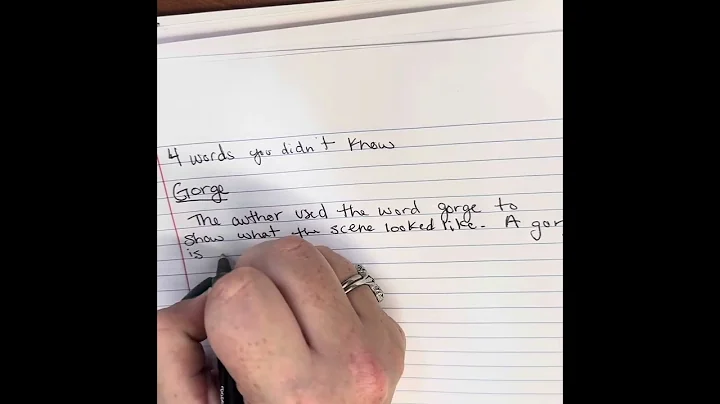 4 words you didn't know
Gorge
The author used the word gorge to
show what the scene looked like. A gor
is